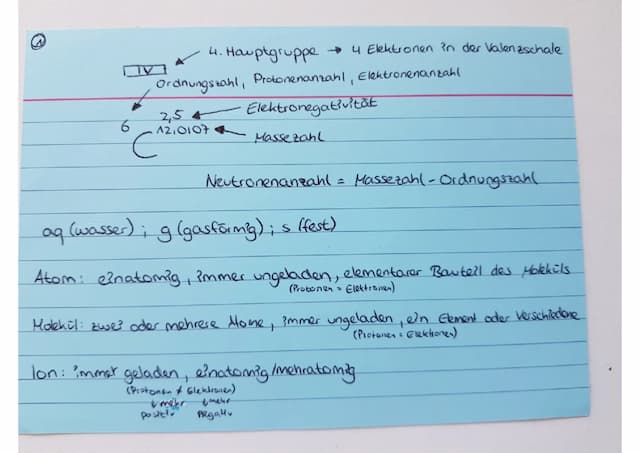 1
4. Hauptgruppe → 4 Elektronen in der Valenzschale
IV
Ordnungszahl, Protonenanzahl, Elektronenanzahl
2,5 ← Elektronegativität
6
12,0107 ← Massezahl
C
Neutronenanzahl = Massezahl - Ordnungszahl
aq (wasser) ; g (gasförmig) ; s (fest)
Atom: einatomig, immer ungeladen, elementarer Bauteil des Moleküls
(Protonen = Elektronen)
Molekül: zwei oder mehrere Atome, immer ungeladen, ein Element oder Verschiedene
(Protonen = Elektronen)
Ion: immer geladen, einatomig/mehratomig
(Protonen ≠ Elektronen)
↓ mehr ↓ mehr
positiv negativ